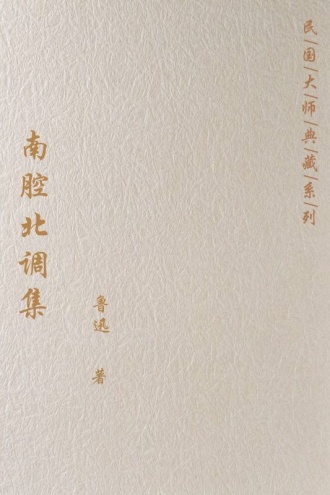 民国大师典藏系列
南腔北调集
鲁迅 著